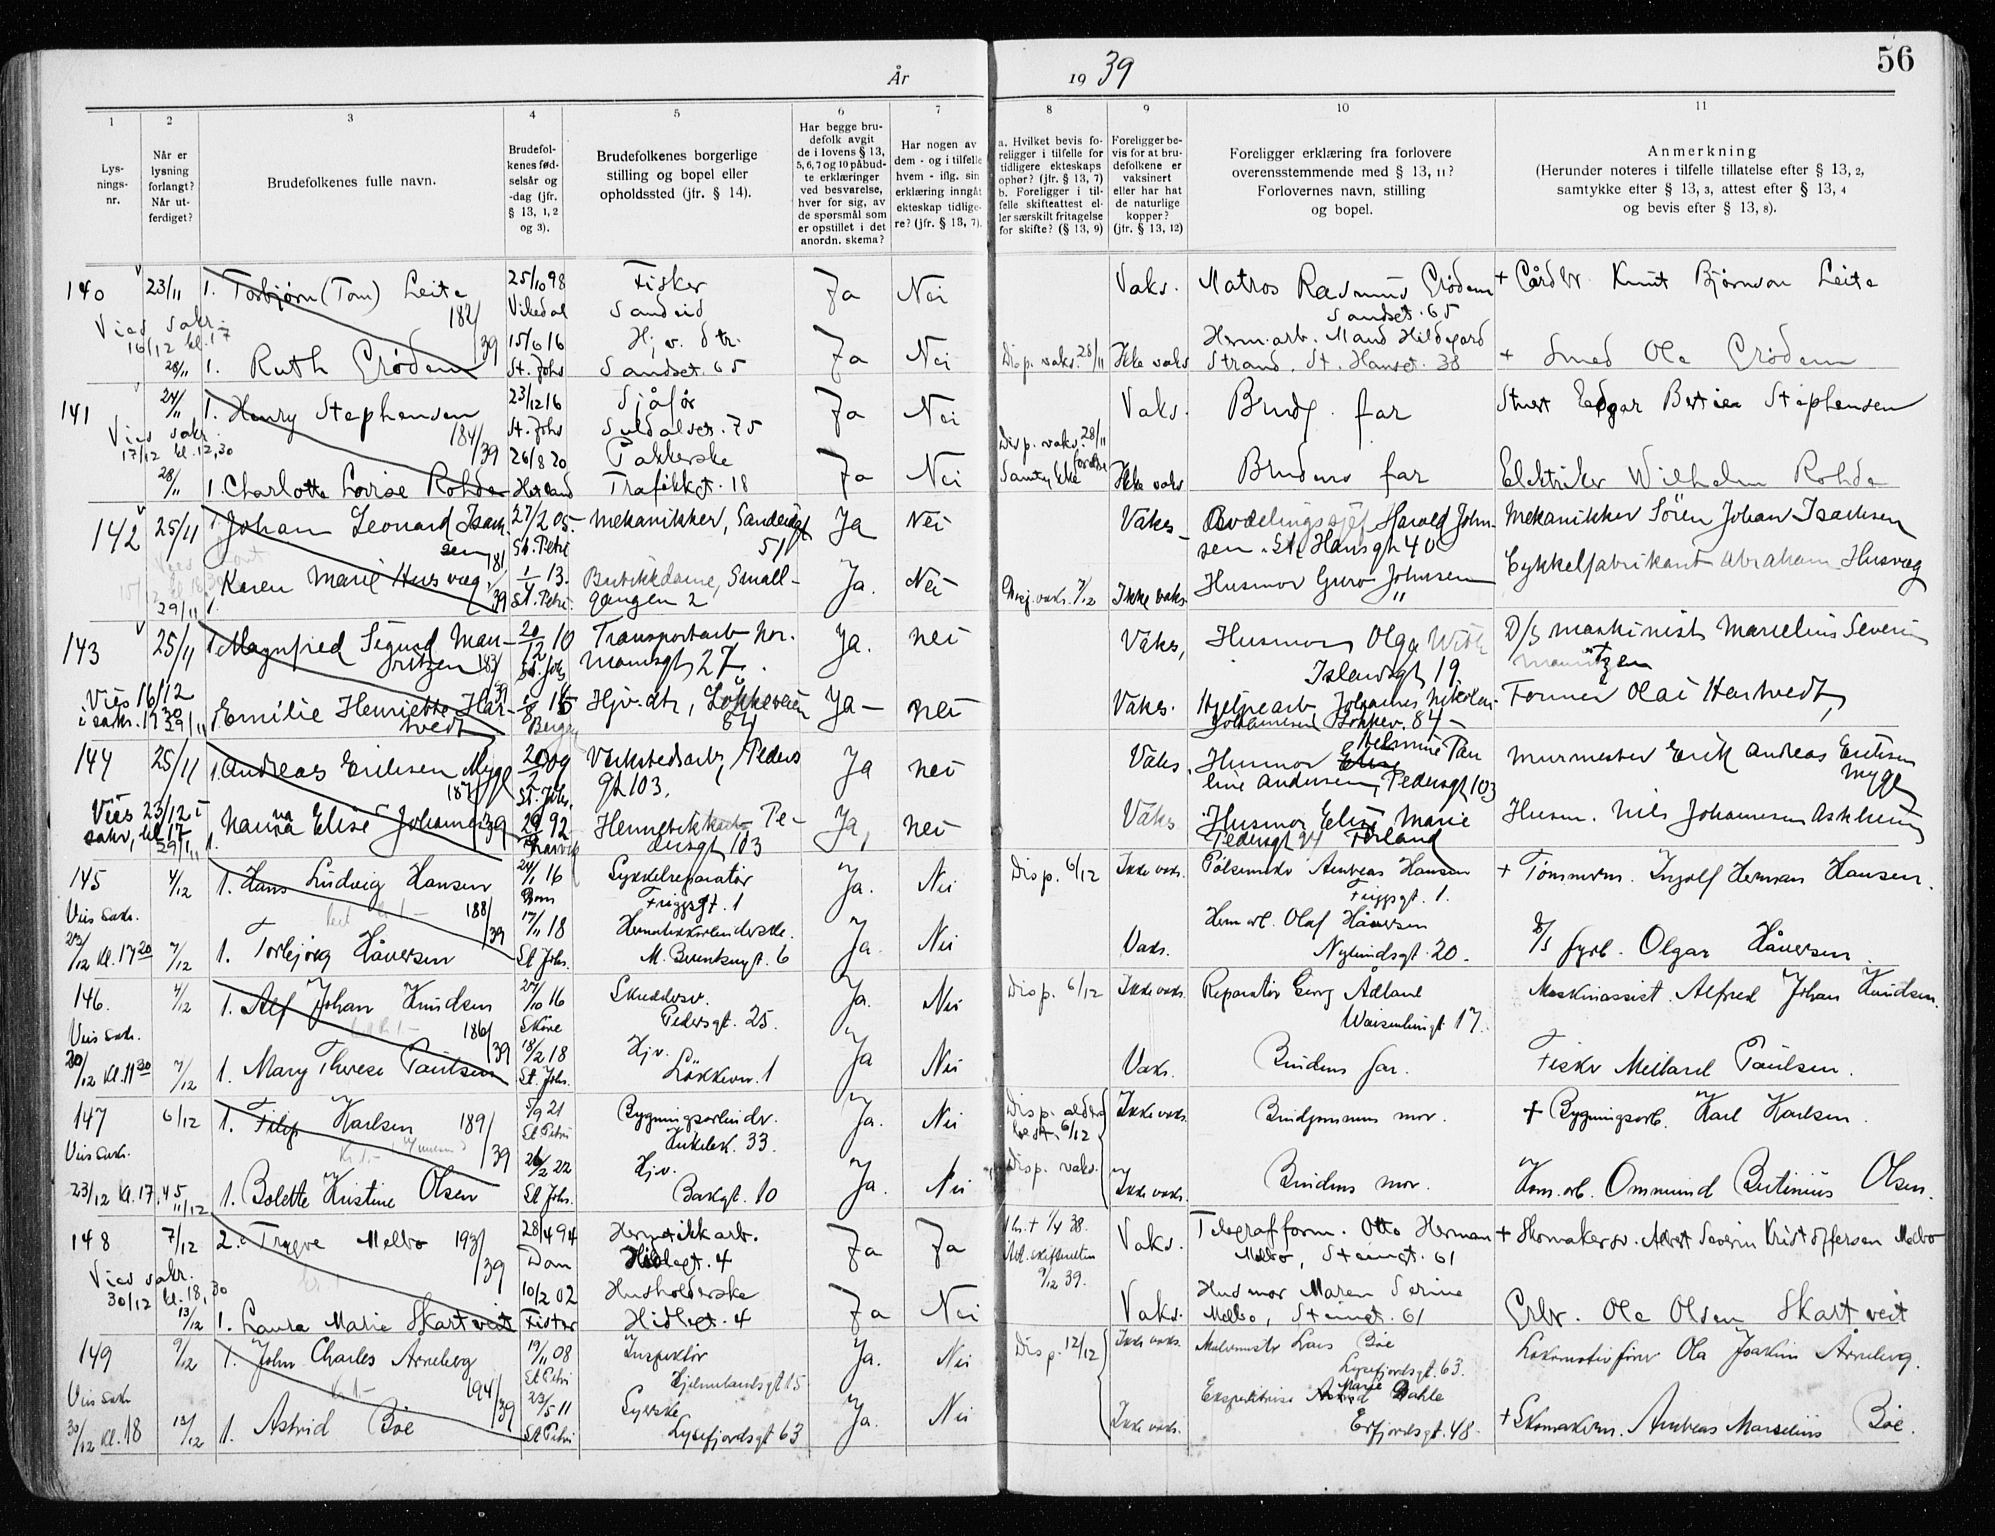 56
År 1939
1 2 3 4 5 6 7 8 9 10 11
Lys-
nings-
nr.
Når er
lysning
forlangt?
Når ut-
ferdiget?
Brudefolkenes fulle navn.
Brudefol-
kenes fød-
selsår og
-dag (jfr.
§ 13, 1, 2
og 3).
Brudefolkenes borgerlige
stilling og bopel eller
opholdssted (jfr. § 14).
Har begge bru-
defolk avgit
de i lovens § 13,
5, 6, 7 og 10 påbud-
te erklæringer
ved besvarelse,
hver for sig, av
de spørsmål som
er opstillet i det
anordn. skema?
Har nogen av
dem - og i tilfelle
hvem - iflg. sin
erklæring inngåt
ekteskap tidlige-
re? (jfr. § 13, 7).
a. Hvilket bevis fo-
religger i tilfelle for
tidligere ekteskaps
ophør? (jfr. § 13, 7)
b. Foreligger i til-
felle skifteattest el-
ler særskilt fritagelse
for skifte? (§ 13, 9)
Foreligger be-
vis for at bru-
defolkene er
vaksinert
eller har hat
de naturlige
kopper?
(jfr. § 13, 12)
Foreligger erklæring fra forlovere
overensstemmende med § 13, 11?
Forlovernes navn, stilling
og bopel.
Anmerkning
(Herunder noteres i tilfelle tillatelse efter § 13, 2,
samtykke efter § 13, 3, attest efter § 13, 4
og bevis efter § 13, 8).
140 23/11 1. Torbjørn (Tom) Leite 25/10 98 Fisker Ja Nei Vaks. Matros Rasmus Grødem + Gårdbr. Knut Bjørnson Leite
182/39 Vikedal Sandeid Sandset. 65
Vies sakr. 16/12 kl. 17 15/6 16 H. v. dtr. Hermarb. Maud Hildegard
28/11 1. Ruth Grødem St. Johs Sandset. 65 Ja Nei Disp. vaks. 28/11 Ikke vaks Strand. St. Hanset. 38 + Smed Ole Grødem
141 24/11 1. Henry Stephensen 23/12 16 Sjåfør Ja Nei Vaks. Brudg. far Stuert Edgar Stephensen
184/39 St. Johs Suldalsgt. 75
Vies sakr. 17/12 kl. 12,30 26/8 20 Pakkerske Disp. vaks. 28/11
28/11 1. Charlotte Lovise Rohde Hetland Trafikkgt. 18 Ja Nei Samtykke Ikke vaks Brudens far Elektriker Wilhelm Rohde
142 25/11 1. Johan Leonard Isach- 27/2 05. Mekanikker, Sandeidgt Ja Nei Vaks- Avdelingssjef Harald John- Mekanikker Sören Johan Isachsen
sen 181/39 St. Petri 51 sen. St. Hansgt 40
29/11 1. Karen Marie Husvæg 13. Butikkdame, Small- Ja. Nei 7/12 Ikke vaks. Husmor Guro Johnsen Cykkelfabrikant Abraham Husvæg
St. Petri. gangen 2
143 25/11 1. Magnfred Sigurd Mau- 20/12 10 Transportarb. Nor. Ja. nei Vaks, Husmor Olga D/S maskinist Marselius Severin
ritzen 183/39 St. Joh. mannsgt 27. Islandsgt 19 Mauritzen
Vies 16/12 i sakr. 17 30 29/11 Emilie Henriette Har- 15 Hjv. dtr, Løkkeveien Ja- nei Vaks. Hjelpearb. Johannes Nikolai Former Olai Hartvedt,
tvedt Bergen 84 Johannesen Løkkev. 84-
144 25/11 1. Andreas Eriksen Mygl 09 Verkstedarb, Peders Ja nei Vaks. Husmor Helmine Pau Murmester Erik Andreas Eriksen
187/39 St. Johs. gt 103. line Andersen, Pedersgt 103 Mygl
Vies 23/12 i sakr, kl 17 29/11 1. Nanna Elise Johannes 92 Hermetikkarb Pe- Ja, nei Vaks Husmor Elise Marie Husm. Nils Johannesen Askheim
Narvik dersgt 103 Pedersgt 94 Förland
145 4/12 1. Hans Ludvig Hansen 24/1 16 Sykkelreparatør Ja. Nei Disp. 6/12 Ikke vaks. Pölsemaker Andreas Hansen + Tömmerm. Ingolf Herman Hansen.
188/39 Dom Friggsgt. 1 Friggsgt. 1.
Vies sakr. 17/11 18 Hermetikkarbeiderske. Herm arb. Olaf Håversen
23/12 kl. 17 20 7/12 1. Torbjörg Håversen St Johs. M. Brunksugt. 6 Ja. Nei Vaks. Nylundsgt. 20. D/S fyrb. Olgar Håversen.
146. 4/12 1. Alf Johan Knudsen 27/10 16 Skreddersv. Ja. Nei Disp. 6/12 Ikke vaks. Reparatör Georg Ådland Maskinassist. Alfred Johan Knudsen.
186/39 Skåre Pedersgt. 25. Waisenhusgt. 17.
Vies sakr. 18/2 18 Hjv.
20/12 kl. 11 30 7/12 1. Mary Therese Paulsen St. Johs. Lökkevn. 1 Ja Nei Vaks. Brudens far. Fisker Meilard Paulsen.
147 6/12 1. Filip Karlsen 189/39 5/9 21 Bygningsarbeider Ja. Nei Disp. alders Ikke vaks. Brudgommens mor. + Bygningsarb. Karl Karlsen.
St Petri 33. best. 6/12
Vies sakr. 26/2 22 Hjv. Disp. vaks.
23/12 kl. 17,45 11/12 1. Bolette Kristine Olsen St Johs. Bakgt. 10 Ja. Nei Ikke vaks. Brudens mor. Kom. arb. Ommund Bertinius Olsen.
148 7/12 2. Trygve Melbo 193/39 28/4 94 Hermetikkarb. Ja Ja 1/4 38. Vaks. Telegrafform. Otto Herman + Skomakersv. Albert Severin Kristoffersen Melbo
Dom Hidlegt. 4 Melbo, Steingt. 61
Vies sakr. 30/12 kl. 18,30 10/2 02 Husholderske 9/12 39. Husmor Maren Serine
13/12 1. Laura Marie Skartveit Fister Hidlegt. 4 Ja Nei Vaks. Melbo, Steingt. 61 Grbr. Ole Olsen Skartveit
149 9/12 1. John Charles Arneberg 19/11 08 Inspektör Ja. Nei Disp. 12/12 Ikke vaks. Malermester Lars Böe Lokomotivförer Ola Joakim Arneberg.
194/39 St Petri Hjelmelandsgt 15 Lysefjordsgt. 63.
Vies sakr 23/5 11 Syerske Ekspeditrise Marie Dahle
30/12 kl. 18 13/12 1. Astrid Böe St Petri Lysefjordsgt 63 Ja. Nei Ikke vaks. Erfjordsgt. 48. + Skomakerm. Andreas Marselius Böe.